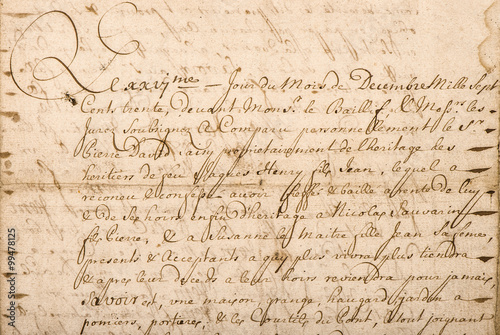 Le xxiv.me Jour du Mois de Decembre Mille Sept
Cents trente, devant Mons.r le Baillif, & Mess.rs les
Jurez soubsignez a Comparu personnellement le S.r
Pierre David, proprietairement de l'heritage des
heritiers de feu Jaques Henry fils Jean, lequel a
reconeu & confessé avoir fieffé & baillé a rente de luy
& de Ses hoirs en fin d'heritage a Nicolas Sauvarin
fils Pierre, & Susanne le Maitre fille Jean sa feme,
presents & Acceptants a qui plus vivra plus tiendra
& apres leur deceds a leur hoirs reviendra pour jamais,
Savoir est, une maison, grange, haugard, jardin a
pomiers, portieres, & les Courtils du Pont, Atout joignant
Adobe Stock | #99478125